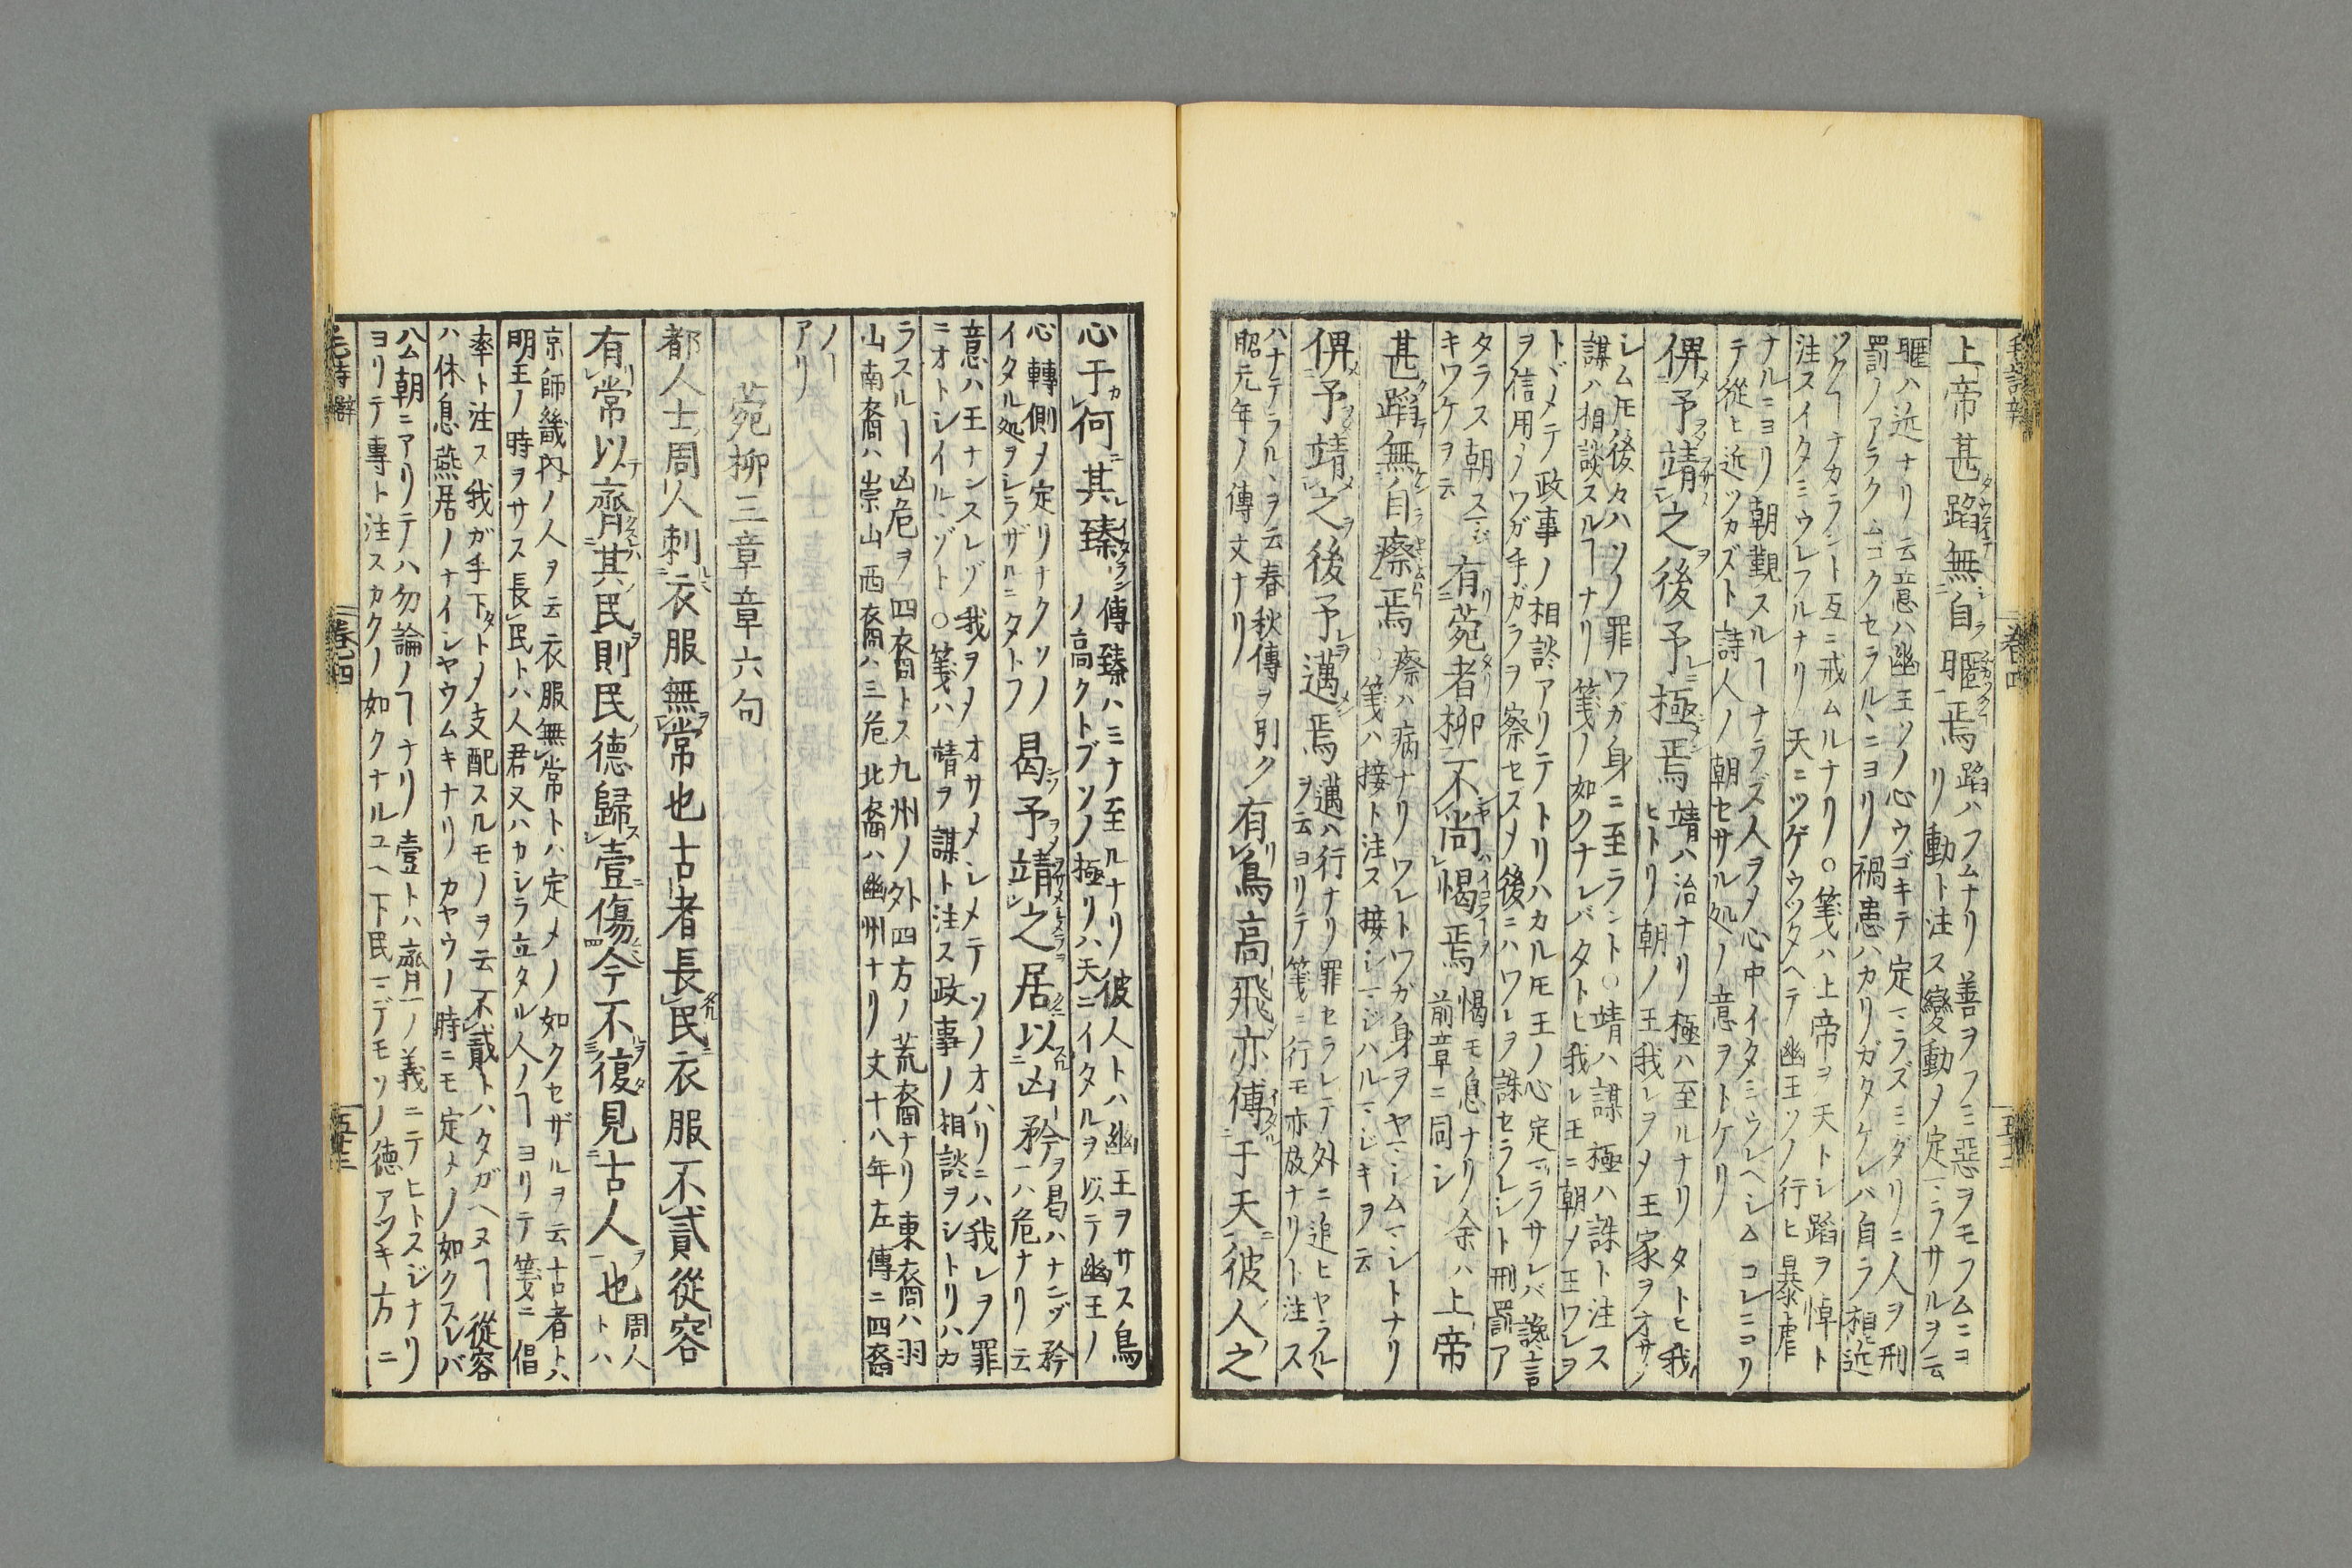 上帝甚蹈無自暱焉 蹈ハフムナリ善ヲフミ惡ヲモフムニヨ
リ動ト注ス變動メ定マラサルヲ云
暱ハ近ナリ云意ハ幽王ソノ心ウゴキテ定マラズミダリニ人ヲ刑
罰ノアラクムゴクセラルヽニヨリ禍患ハカリガタケレバ自ラ相近
ツクヿナカラント互ニ戒ムルナリ○箋ハ上帝ヲ天トシ蹈ヲ悼ト
注スイタミウレフルナリ天ニツゲウツタヘテ幽王ソノ行ヒ暴虐
ナルニヨリ朝觀スルヿナラズ人ヲメ心中イタミウレヘシム コレニヨリ
テ從ヒ近ツカズト詩人ノ朝セサル処ノ意ヲトケリ
俾予靖之後予極焉 靖ハ治ナリ極ハ至ルナリタトヒ我
ヒトリ朝ノ王我レヲメ王家ヲオサメ
シムモ後々ハソノ罪ワガ身ニ至ラント○靖ハ謀極ハ誅ト注ス
謀ハ相談スルヿナリ箋ノ如クナレバタトヒ我レ王ニ朝メ王ワレヲ
トヾメテ政事ノ相談アリテトリハカルモ王ノ心定マラサレバ讒言
ヲ信用ノワガ手ガラヲ察セズメ後ニハワレヲ誅セラレント刑罰ア
タラス朝スマジ
キワケヲ云
有菀者柳不尚愒焉 愒モ息ナリ余ハ上帝
前章ニ同シ
甚蹈無自瘵焉 瘵ハ病ナリワレトワガ身ヲヤマシムマシトナリ
○箋ハ接ト注ス接シマジハルマジキヲ云
俾予靖之後予邁焉 邁ハ行ナリ罪セラレテ外ニ追ヒヤラルヽ
ヲ云ヨリテ箋ニ行モ亦放ナリト注ス
ハナテラルヽヲ云春秋傳ヲ引ク
昭元年ノ傳文ナリ
有鳥高飛亦傅于天彼人之
心于何其臻 傳臻ハミナ至ルナリ彼人トハ幽王ヲサス鳥
ノ高クトブソノ極リハ天ニイタルヲ以テ幽王ノ
心轉側メ定リナクソノ
イタル処ヲシラザルニタトフ
曷予靖之居以凶矜 曷ハナニゾ矜
ハ危ナリ云
意ハ王ナンスレゾ我ヲメオサメシメテソノオハリニハ我レヲ罪
ニオトシイルヽゾト○箋ハ靖ヲ謀ト注ス政事ノ相談ヲシトリハカ
ラスルヿ凶危ヲ四裔トス九州ノ外四方ノ荒裔ナリ東裔ハ羽
山南裔ハ崇山西裔ハ三危北裔ハ幽州ナリ文十八年左傳ニ四裔
ノヿ
アリ
菀柳三章章六句
都人士周人刺衣服無常也古者長民衣服不貳從容
有常以齊其民則民德歸壹傷今不復見古人也 周人
トハ
京師畿内ノ人ヲ云衣服無常トハ定メノ如クセザルヲ云古者トハ
明王ノ時ヲサス長民トハ人君又ハカシラ立タル人ノヿヨリテ箋ニ倡
率ト注ス我ガ手下タトメ支配スルモノヲ云不貳トハタガヘヌヿ從容
ハ休息燕居ノナインヤウムキナリカヤウノ時ニモ定メノ如クスレバ
公朝ニアリテハ勿論ノヿナリ壹トハ齊一ノ義ニテヒトスジナリ
ヨリテ專ト注スカクノ如クナルユヘ下民マデモソノ德アツキ方ニ
卷四